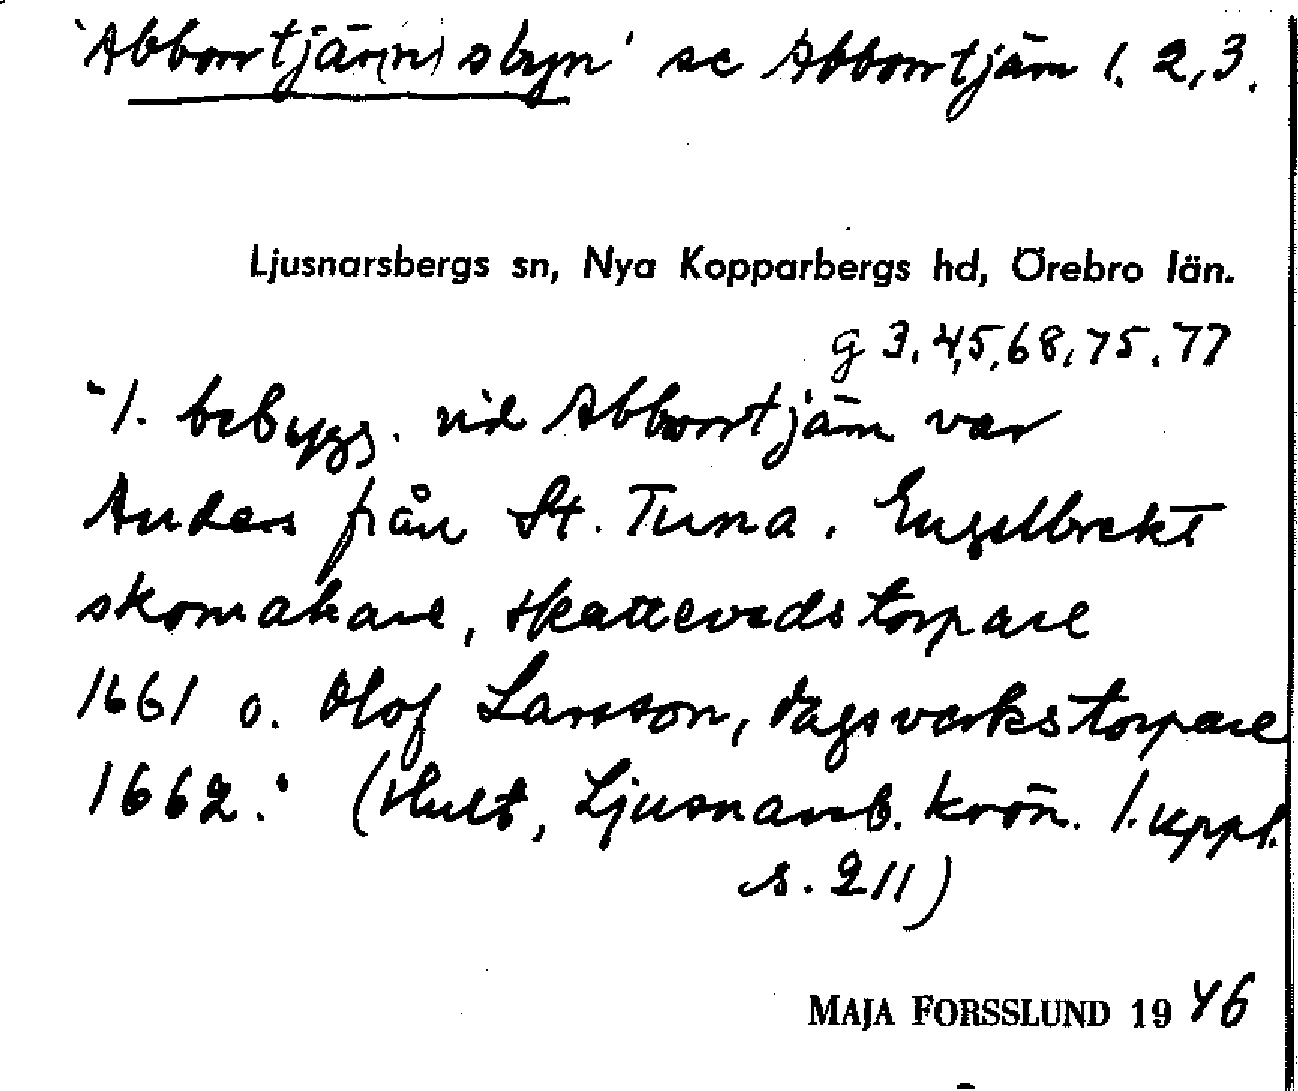 'Abborrtjär(n)sbyn' se Abborrtjärn 1. 2, 3.
Ljusnarsbergs sn, Nya Kopparbergs hd, Örebro län.
g 3, 4, 5, 68, 75. 77
"1. bebygg. vid Abborrtjärn var
Anders från St. Tuna. Engelbrekt
skomakare, skattevedstorpare
1661 o. Olof Larsson, dagsverkstorpare
1662." (Hult, Ljusnarsb. krön. 1. uppl.
s. 211)
MAJA FORSSLUND 1946